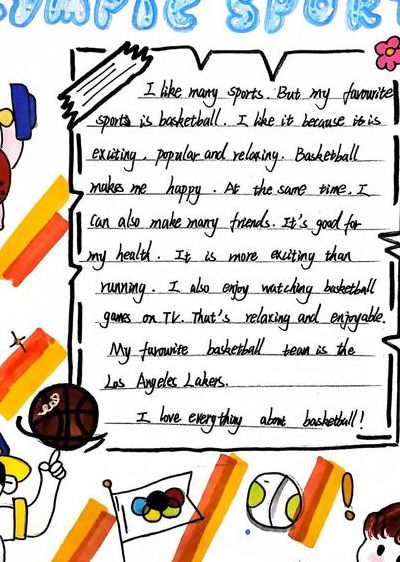 OLYMPIC SPORT
I like many sports. But my favourite
sports is basketball. I like it because it is
exciting, popular and relaxing. Basketball
makes me happy. At the same time, I
can also make many friends. It's good for
my health. It is more exciting than
running. I also enjoy watching basketball
games on TV. That's relaxing and enjoyable.
My favourite basketball team is the
Los Angeles Lakers.
I love everything about basketball!